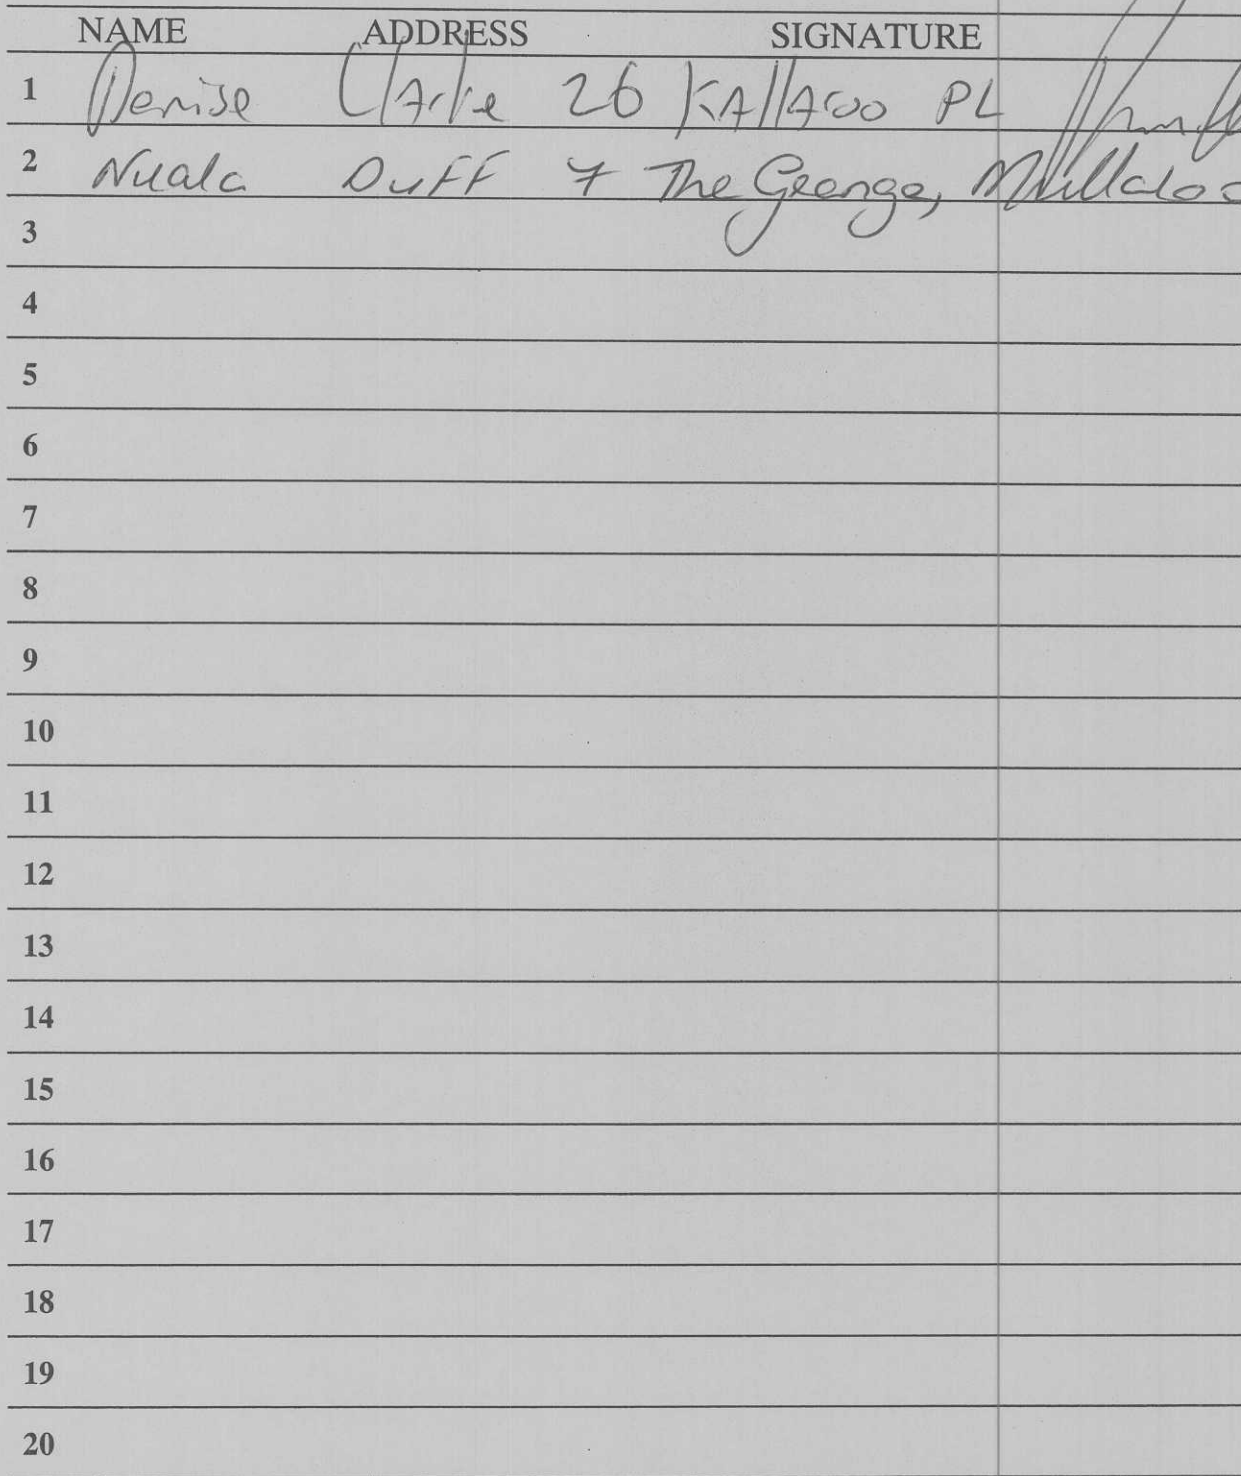 NAME ADDRESS SIGNATURE
1 Denise Clarke 26 KAllAroo PL
2 Nuala Duff 7 The Grange,
3
4
5
6
7
8
9
10
11
12
13
14
15
16
17
18
19
20